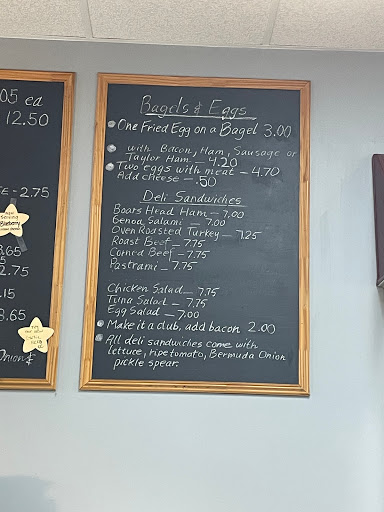 05 ea
12.50
2.75
Blueberry
8.65
2.75
.15
8.65
Onion &
Bagels & Eggs
One Fried Egg on a Bagel 3.00
with Bacon, Ham, Sausage or
Taylor Ham - 4.20
Two eggs with meat - 4.70
Add cheese - .50
Deli Sandwiches
Boars Head Ham - 7.00
Genoa Salami - 7.00
Oven Roasted Turkey - 7.25
Roast Beef - 7.75
Corned Beef - 7.75
Pastrami - 7.75
Chicken Salad - 7.75
Tuna Salad - 7.75
Egg Salad - 7.00
Make it a club, add bacon 2.00
All deli sandwiches come with
lettuce, ripe tomato, Bermuda Onion
pickle spear.